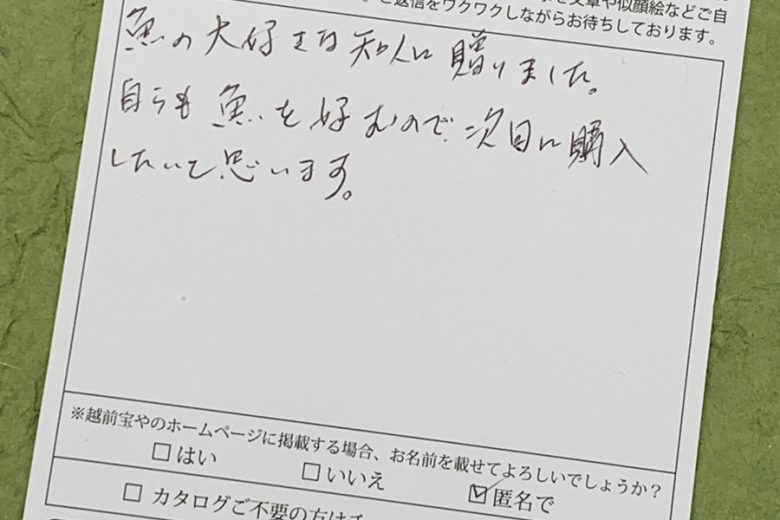 を文章や似顔絵などご自
ご返信をワクワクしながらお待ちしております。
魚の大好きな知人に贈りました。
自らも魚を好むので次回に購入
したいと思います。
※越前宝やのホームページに掲載する場合、お名前を載せてよろしいでしょうか?
□はい □いいえ ☑匿名で
□ カタログご不要の方はチ